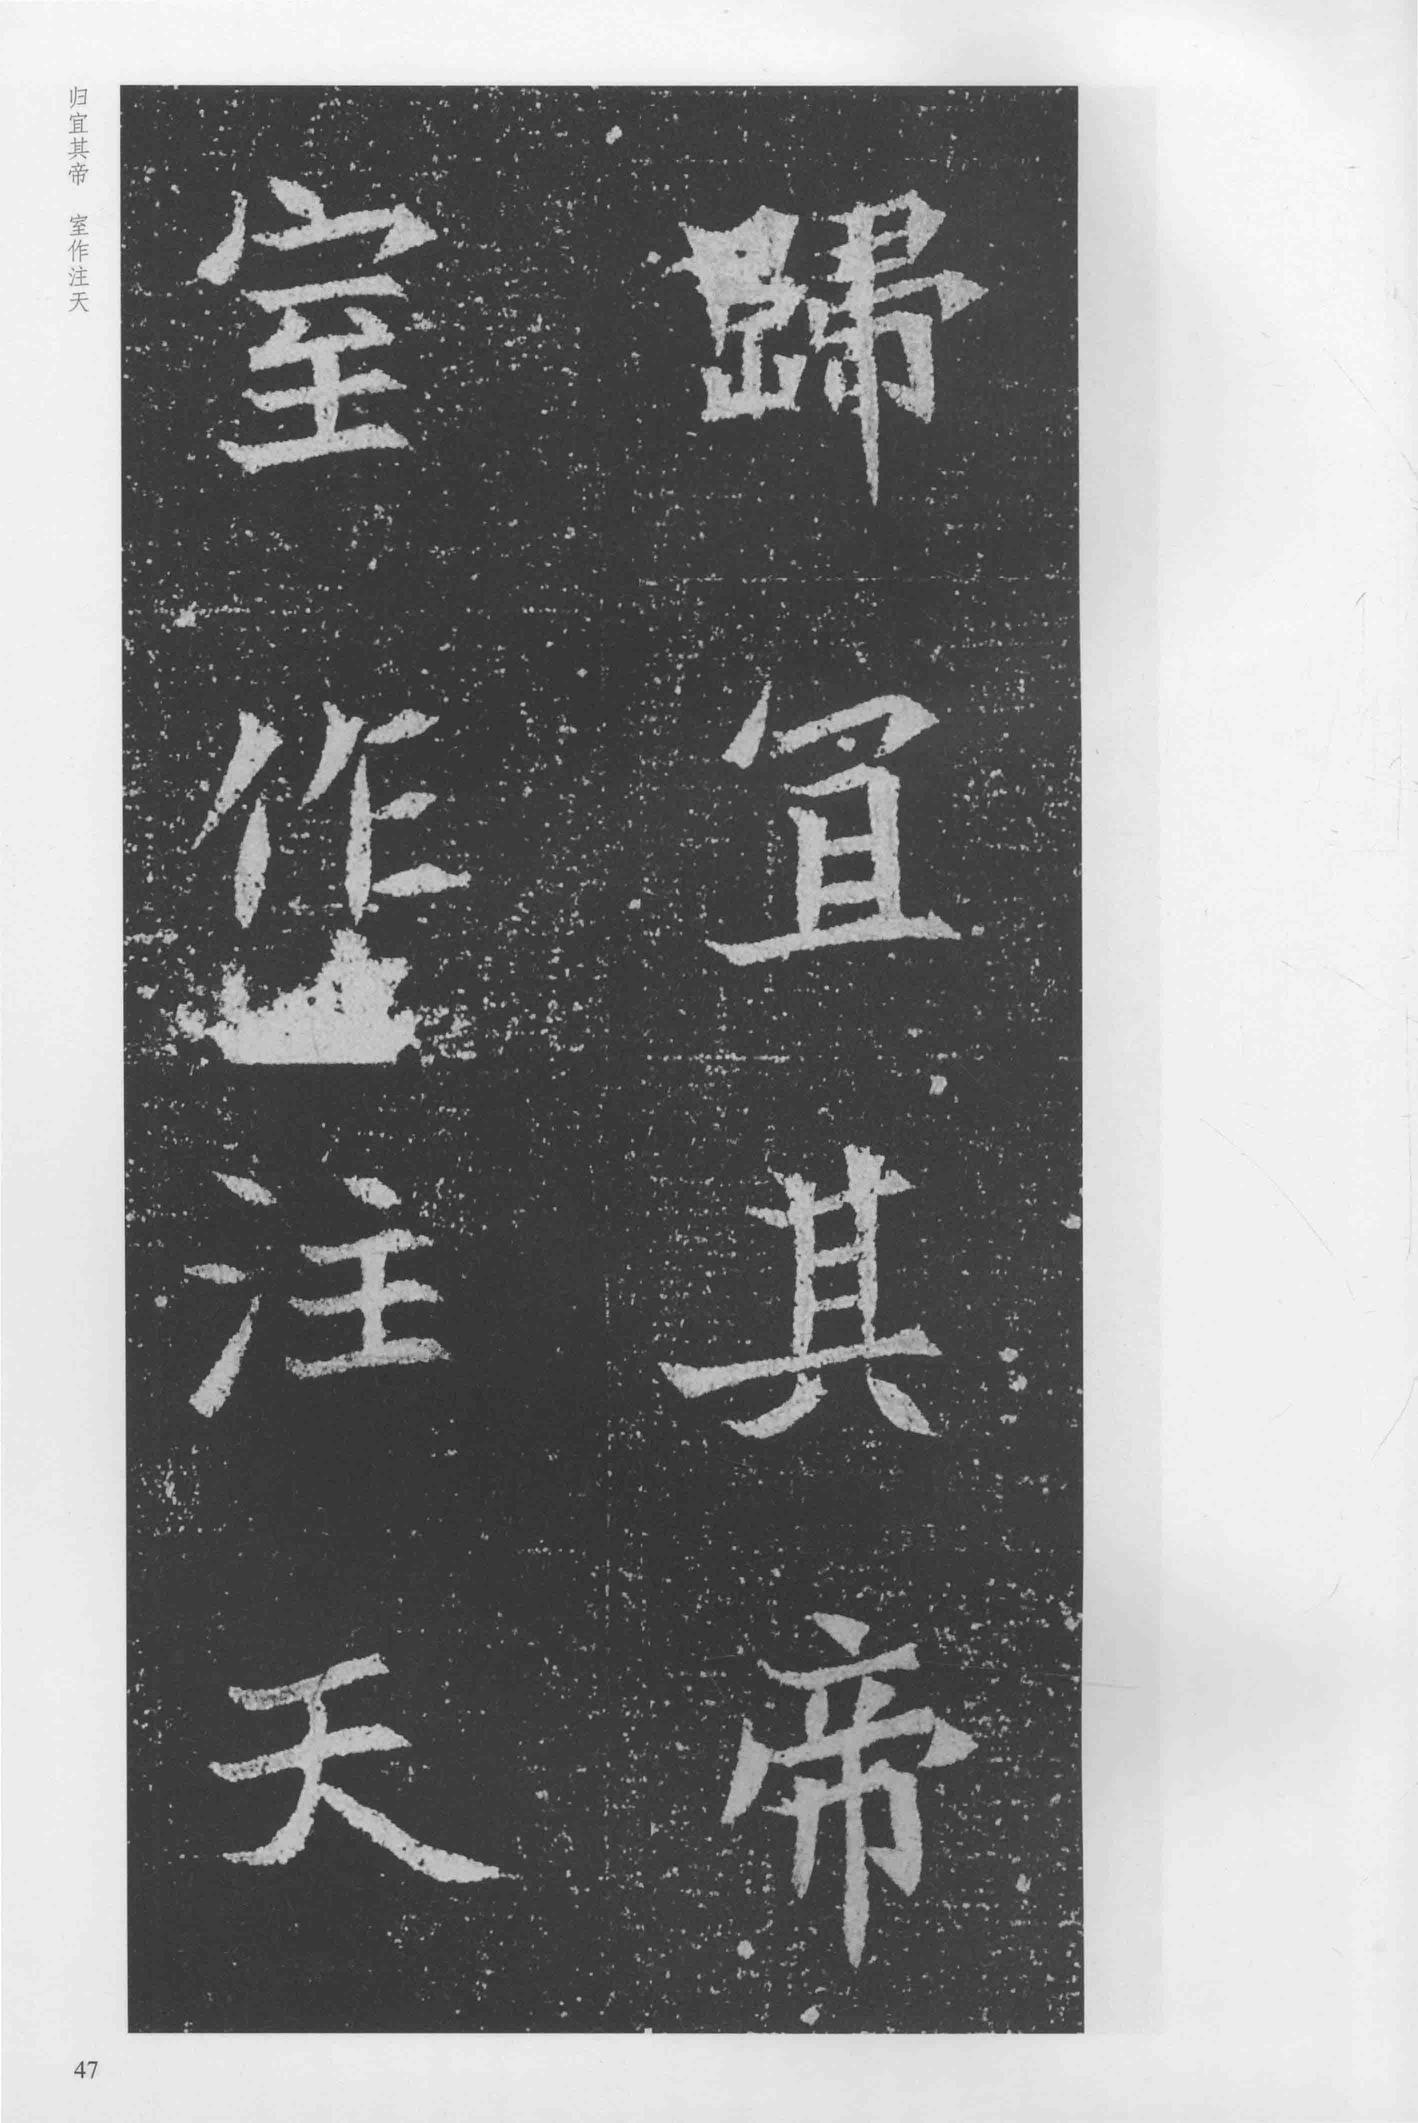 歸宜其帝
室作注天
归宜其帝 室作注天
47